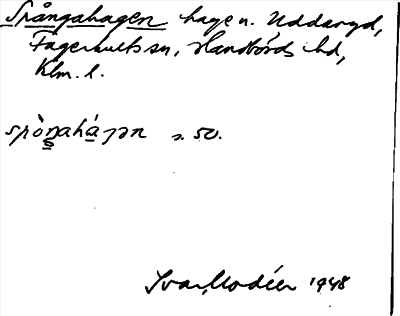 Spångahagen hage u. Uddaryd,
Fagerhults sn, Handbörds hd,
Klm. l.
spòŋahágən s. 50.
Ivar Modéer 1948